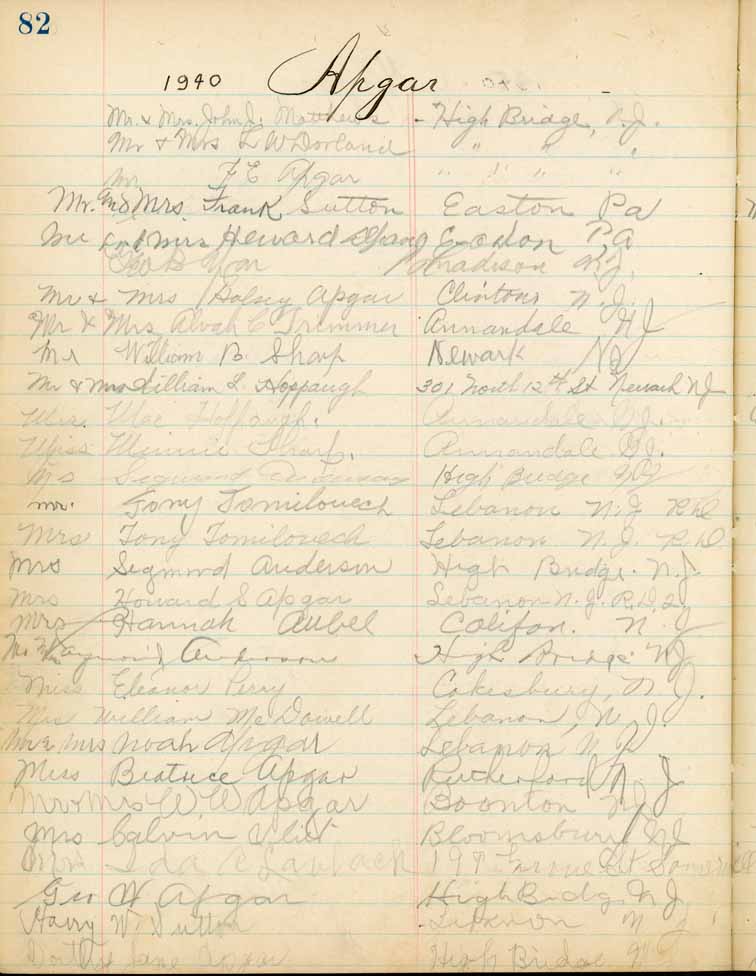 82
1940 Apgar
Mr. & Mrs. John J. Matthews - High Bridge, N.J.
Mr & Mrs L W Dorland " " "
Mr F E Apgar " " " "
Mr. and Mrs. Frank Sutton Easton Pa
Mr and Mrs Howard Easton PA
Geo B Madison N.J.
Mr & Mrs Halsey Apgar Clinton N.J.
Mr & Mrs Alvah C Trimmer Annandale N J
Mr William B. Sharp Newark NJ
Mr & Mrs William L. Hoppaugh 301 North 12th St Newark NJ
Miss Mae Hoppaugh. Annandale N.J.
Miss Minnie Sharp. Annandale N.J.
Segmund High Bridge NJ
Mr. Tony Tomilovech Lebanon N.J. R.D
Mrs Tony Tomilovech Lebanon N.J. R.D
Mrs Segmond Anderson High Bridge. N.J.
Mrs Howard S Apgar Lebanon N.J. R.D.2.
Mrs Hannah Aubel Califon. N.J
Raymond Anderson High Bridge NJ
Miss Eleanor Perry Cokesbury, N.J.
Mrs William McDowell Lebanon, N.J.
Mr & Mrs Noah Apgar Lebanon N J
Miss Beatrice Apgar Rutherford N. J
Mr & Mrs W W Apgar Boonton NJ
Mrs Calvin Vliet Bloomsbury NJ
Mrs Ida 199 St
Geo W Apgar High Bridg N J
Harry W. Sutton N J
Jane Apgar High Bridge N